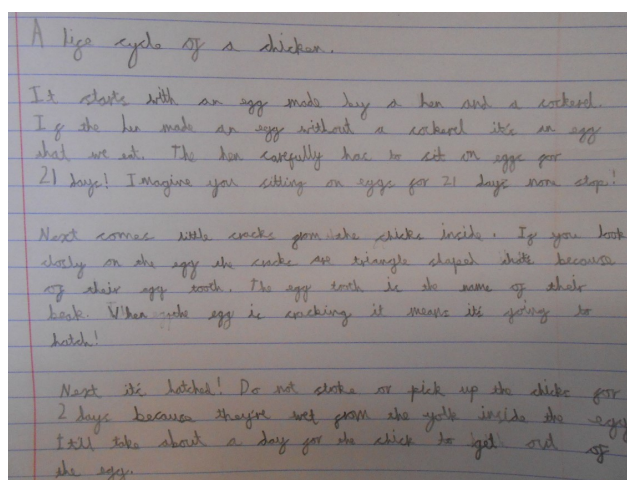 A life cycle of a chicken.
It starts with an egg made by a hen and a cockerel.
If the hen made an egg without a cockerel it's an egg
that we eat. The hen carefully has to sit on eggs for
21 days! Imagine you sitting on eggs for 21 days none stop!
Next comes little cracks from the chicks inside. If you look
closly on the egg the cracks are triangle shaped thats because
of their egg tooth. The egg tooth is the name of their
beak. When the egg is cracking it means its going to
hatch!
Next it's hatched! Do not stroke or pick up the chicks for
2 days because they're wet from the yolk inside the egg
It'll take about a day for the chick to get out of
the egg.